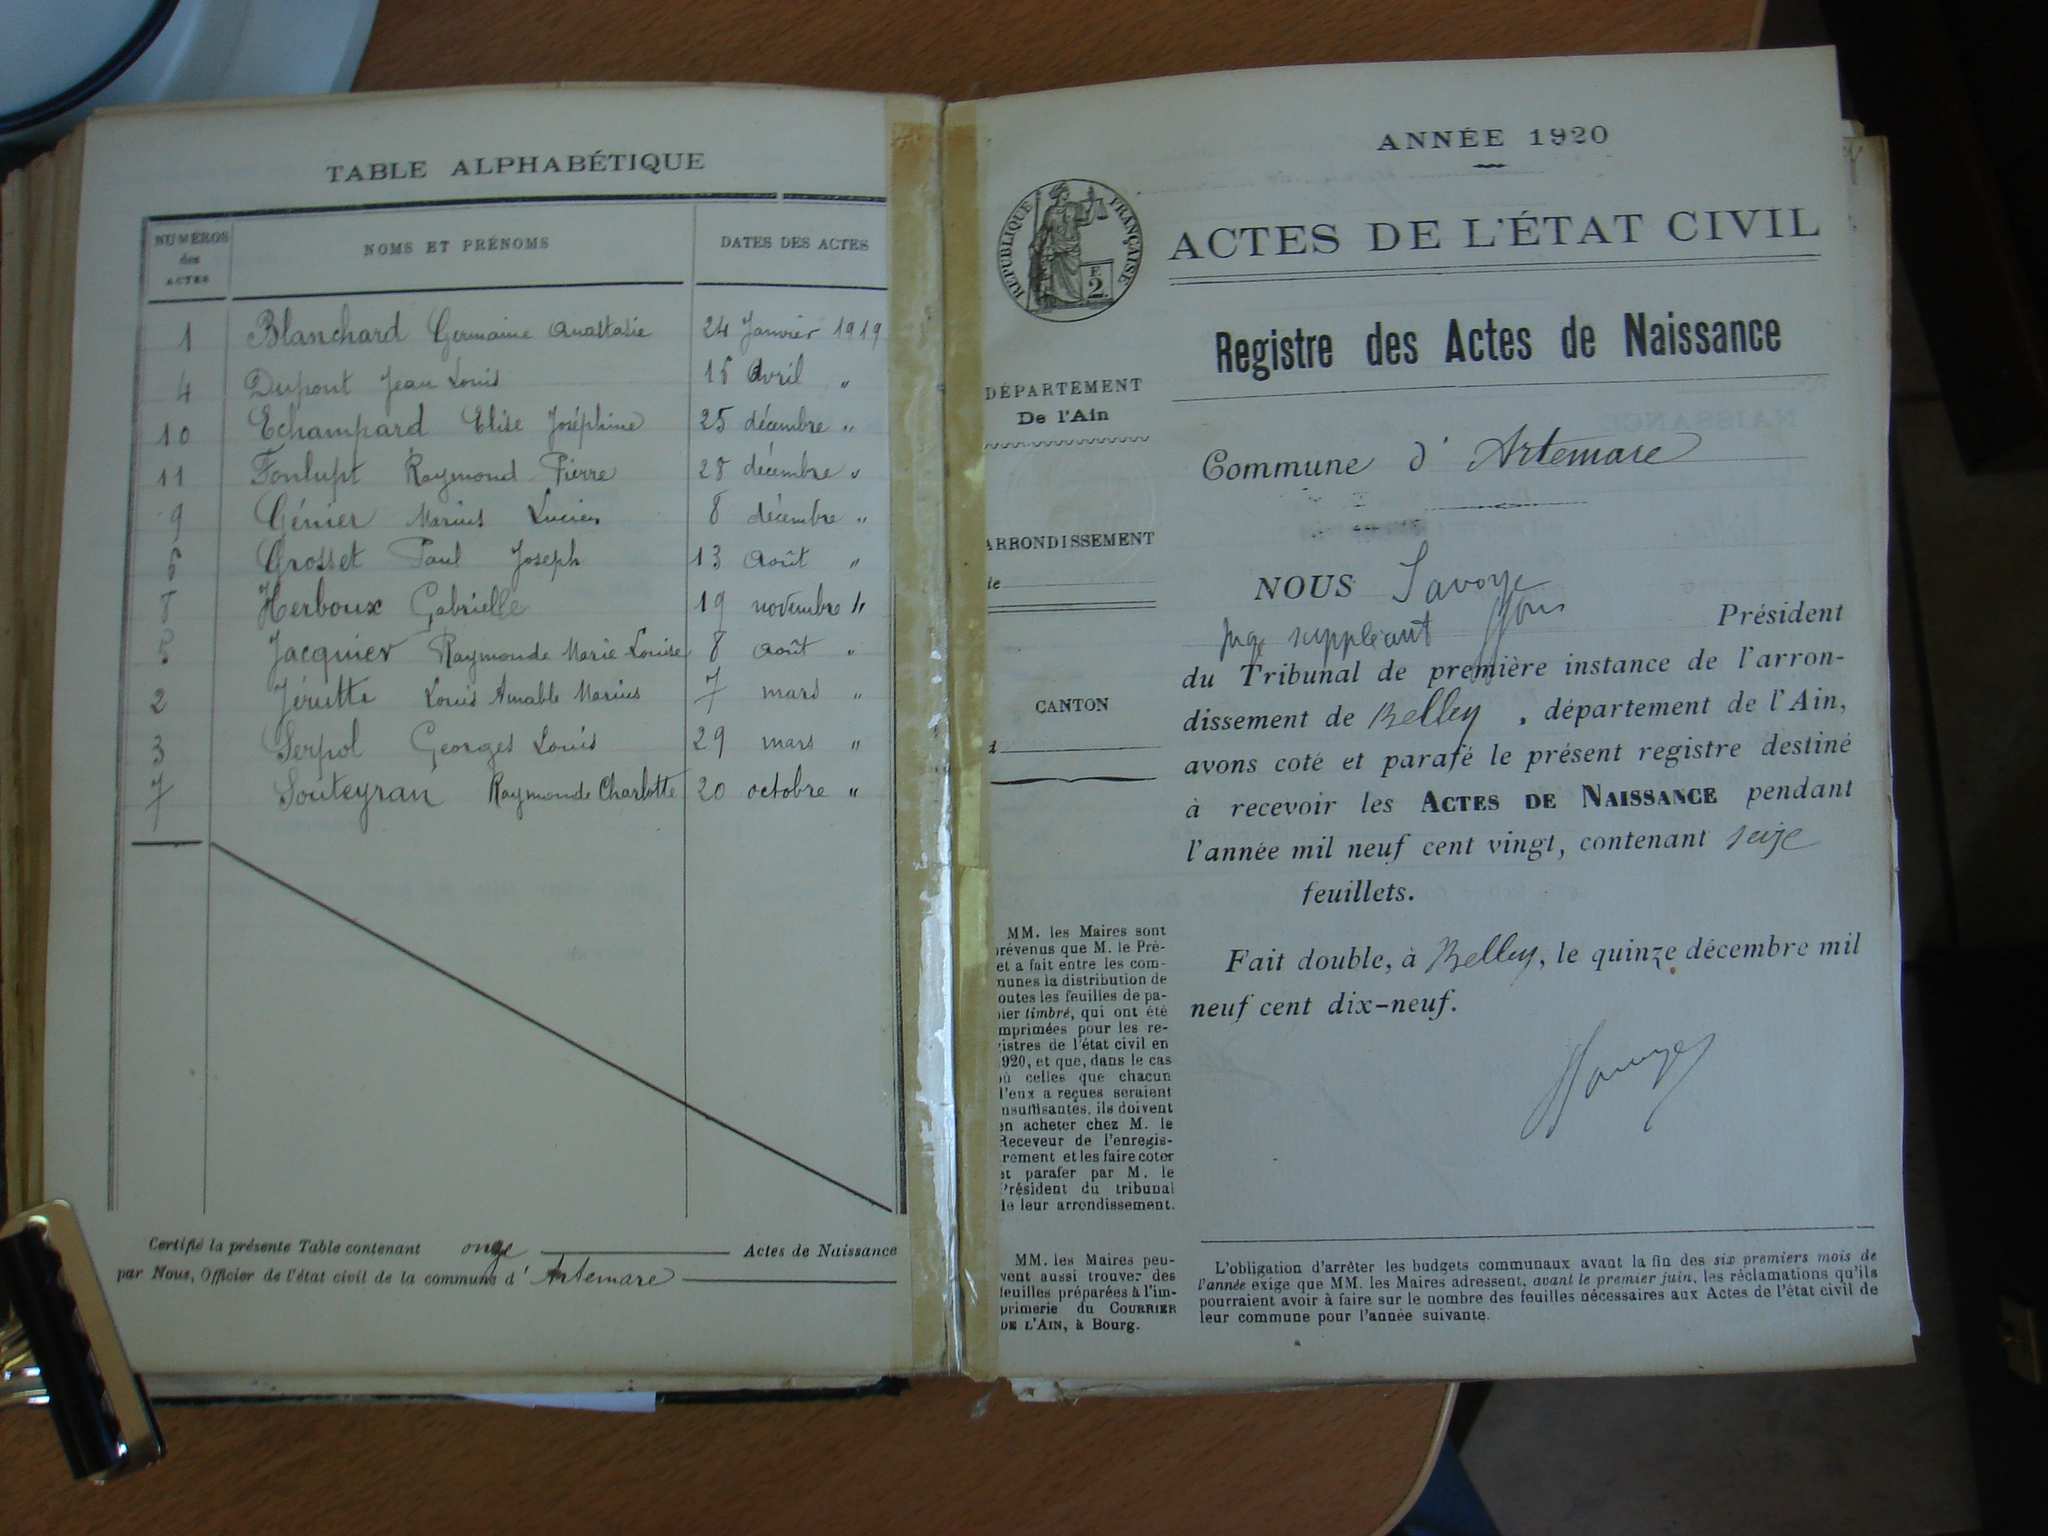 TABLE ALPHABÉTIQUE
NUMÉROS des ACTES NOMS ET PRÉNOMS DATES DES ACTES
1 Blanchard Germaine Anastasie 24 Janvier 1919
4 Dupont Jean Louis 16 Avril "
10 Echampard Elise Joséphine 25 décembre "
11 Fonlupt Raymond Pierre 28 décembre "
9 Génier Marius Lucien 8 décembre "
6 Grosset Paul Joseph 13 Août "
8 Herboux Gabrielle 19 novembre "
5 Jacquier Raymonde Marie Louise 8 Août "
2 Jérutte Louis Amable Marius 7 mars "
3 Serpol Georges Louis 29 mars "
7 Souteyran Raymonde Charlotte 20 octobre "
Certifié la présente Table contenant onze Actes de Naissance
par Nous, Officier de l'état civil de la commune d' Artemare
ANNÉE 1920
RÉPUBLIQUE FRANÇAISE
F
2
ACTES DE L'ÉTAT CIVIL
Registre des Actes de Naissance
DÉPARTEMENT
De l'Ain
ARRONDISSEMENT
CANTON
Commune d' Artemare
NOUS Savoye
juge suppléant Président
du Tribunal de première instance de l'arron-
dissement de Belley, département de l'Ain,
avons coté et parafé le présent registre destiné
à recevoir les ACTES DE NAISSANCE pendant
l'année mil neuf cent vingt, contenant seize
feuillets.
Fait double, à Belley, le quinze décembre mil
neuf cent dix-neuf.
MM. les Maires sont
prévenus que M. le Pré-
et a fait entre les com-
munes la distribution de
outes les feuilles de pa-
pier timbré, qui ont été
imprimées pour les re-
gistres de l'état civil en
1920, et que, dans le cas
où celles que chacun
d'eux a reçues seraient
insuffisantes, ils doivent
en acheter chez M. le
Receveur de l'enregis-
trement et les faire coter
et parafer par M. le
Président du tribunal
de leur arrondissement.
MM. les Maires peu-
vent aussi trouver des
feuilles préparées à l'im-
primerie du COURRIER
DE L'AIN, à Bourg.
L'obligation d'arrêter les budgets communaux avant la fin des six premiers mois de
l'année exige que MM. les Maires adressent, avant le premier juin, les réclamations qu'ils
pourraient avoir à faire sur le nombre des feuilles nécessaires aux Actes de l'état civil de
leur commune pour l'année suivante.